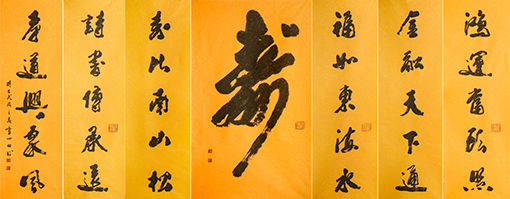 鴻運當頭照
金融天下通
福如東海水
壽
壽比南山松
詩書傳承遠
孝道興家風